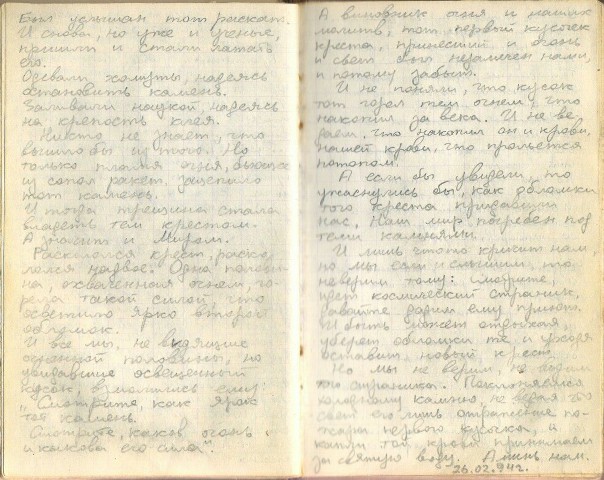 Был услышан тот раскат.
И снова, но уже и ученые,
пришли и стали латать
его.
Одевали хомуты, надеясь
остановить камень.
Заливали наукой, надеясь
на крепость клея.
Никто не знает, что
вышло бы из того. Но
только пламя огня,
из сопел ракет, зацепило
тот камень.
И тогда трещина стала
владеть тем крестом.
А значит и Миром.
Раскололся крест, раско
лолся надвое. Одна полови-
на, охваченная огнем, го-
рела такой силой, что
осветило ярко второй
обломок.
И все мы, не видящие
огненной половины, но
увидавшие освещенный
кусок, взмолились ему:
"Смотрите, как ярок
тот камень.
Смотрите, каков огонь
и какова его сила".
А виновник огня и наших
молитв, тот первый кусочек
креста, принесший и огонь
и свет был незамечен нами,
и потому забыт.
И не поняли, что кусок
тот горел тем огнем, что
накопил за века. И не ве-
даем, что накопил он и крови,
нашей крови, что прольется
потопом.
А если бы увидели, то
ужаснулись бы, как обломки
того креста придавили
нас. Наш мир погребен под
теми камнями.
И лишь кто-то кричит нам,
но мы если и слышим, то
не верим тому: смотрите,
идет космический странник,
давайте дадим ему приют.
И быть может отдыхая,
уберет обломки те и уходя
оставит новый крест.
Но мы не верим, не
того странника. Поклоняемся
холодному камню, не веря что
свет его лишь отражение по-
жара первого кусочка, и
капли той крови принимаем
за святую воду. Аминь нам.
26.02.94г.